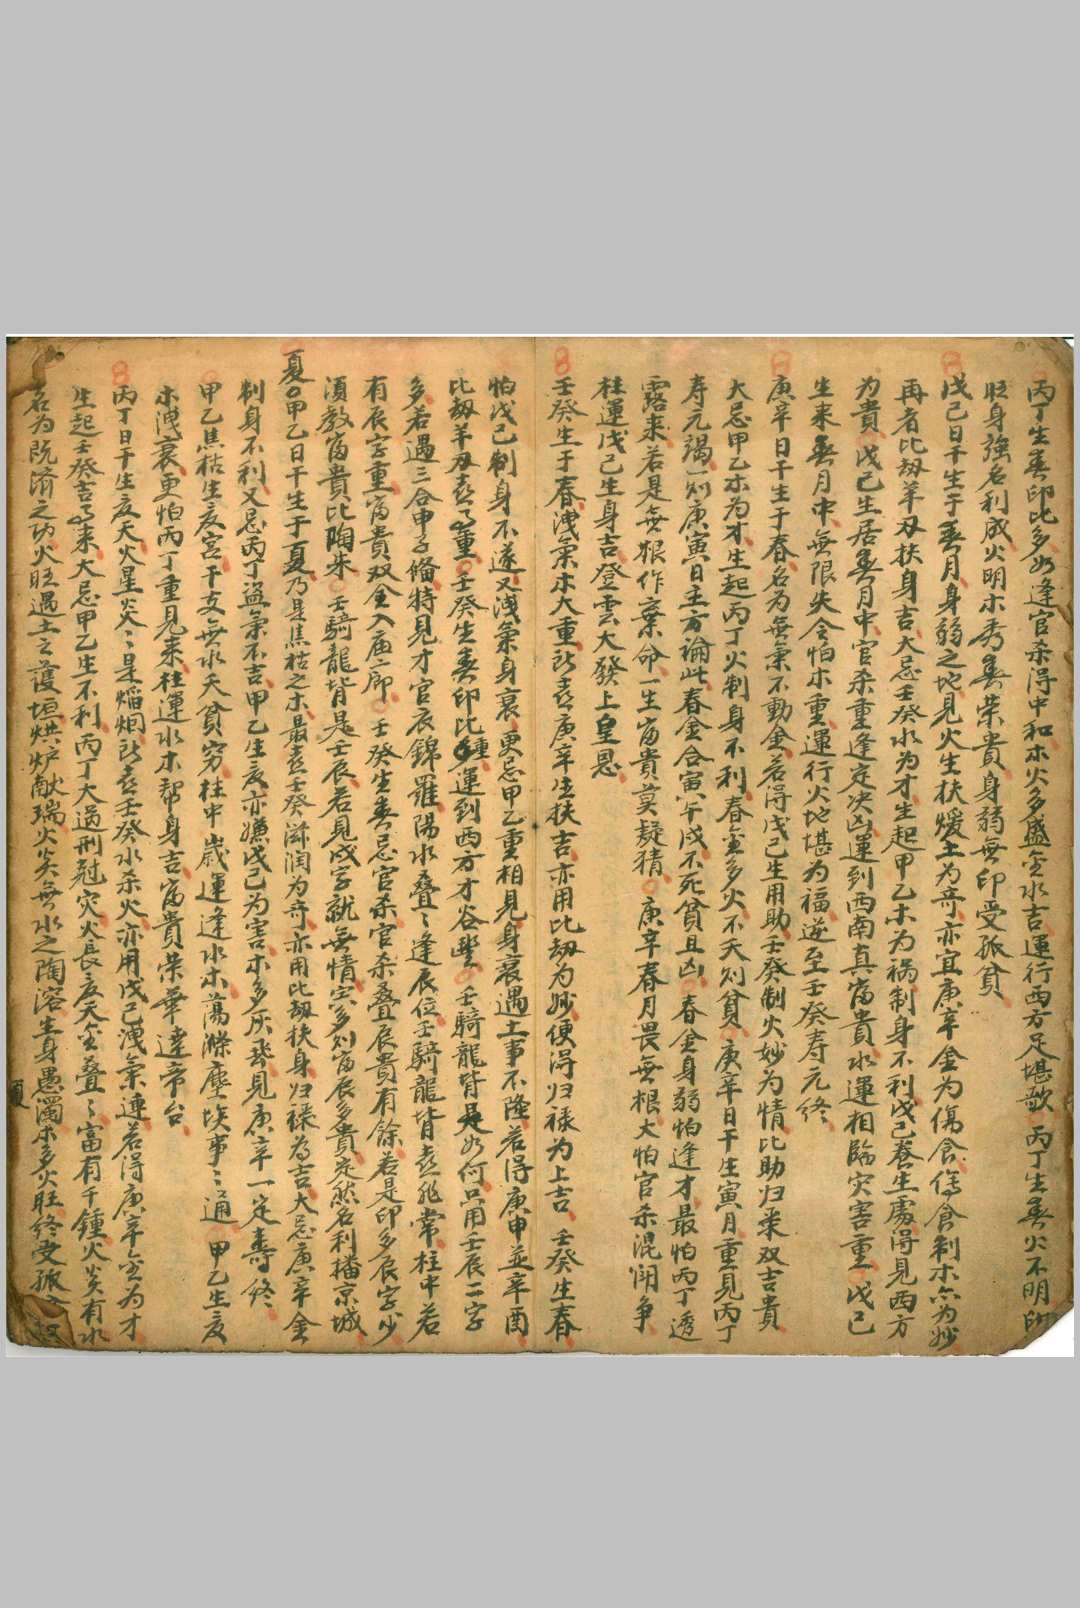 丙丁生春印比多如逢官杀得中和木火多盛金水吉運行西方足堪歌 丙丁生春火不明印
旺身強名利成火明木秀春荣貴身弱無印受孤貧
戊己日干生于春月身弱之地見火生扶煖土为奇亦宜庚辛金为傷食傷食制木亦为妙
再者比刼羊刃扶身吉大忌壬癸水为才生起甲乙木为祸制身不利戊己春生處得見西方
为貴 戊己生居春月中官杀重逢定决凶運到西南真富貴水運相臨灾害重 戊己
生来春月中無限失令怕木重運行火地堪为福逆至壬癸寿元终
庚辛日干生于春名为無氣不動金若得戊己生用助壬癸制火妙为情比助归来双吉貴
大忌甲乙木为才生起丙丁火制身不利春金多火不夭则貧 庚辛日干生寅月重見丙丁
寿元竭一则庚寅日主方論此春金合寅午戌不死貧且凶 春金身弱怕逢才最怕丙丁透
露来若是無根作棄命一生富貴莫疑猜 庚辛春月畏無根大怕官杀混闹争
柱運戊己生身吉登雲大發上皇恩
壬癸生于春洩氣木大重所喜庚辛生扶吉亦用比刼为妙便得归禄为上吉 壬癸生春
怕戊己制身不遂又洩氣身衰更忌甲乙重相見身衰遇土事不隆若得庚申並辛酉
比刼羊刃喜々重 壬癸生春印比鍾運到西方才谷豐 壬騎龍背是如何只用壬辰二字
多若遇三合申子偹特見才官衣錦羅陽水叠々逢辰位壬騎龍背喜非常柱中若
有辰字重富貴双全入庙廊 壬癸生春忌官杀官杀叠辰貴有餘若是印多辰字少
須教富貴比陶朱 壬騎龍背是壬辰若見戌字就無情寅多则富辰多貴定然名利播京城
夏 甲乙日干生于夏乃是焦枯之木最喜壬癸滋润为奇亦用比刼扶身归禄为吉大忌庚辛金
制身不利又忌丙丁盗氣不吉甲乙生夏亦嫌戊己为害木多灰飛見庚辛一定壽终
甲乙焦枯生夏宫干支無水夭貧穷柱中歲運逢水木蕩滌塵埃事々通 甲乙生夏
木洩衰更怕丙丁重見来柱運水木帮身吉富貴荣華達帝台
丙丁日干生夏天火星炎々是熖烟所喜壬癸水杀火亦用戊己洩氣連若得庚辛金为才
生起壬癸吉了来大忌甲乙生不利丙丁大過刑尅灾火長夏天金叠々富有千鍾火炎有水
名为既濟之功火旺遇土之護垣烘炉献瑞火炎無水之陶溶生身愚濁木多火旺终受孤